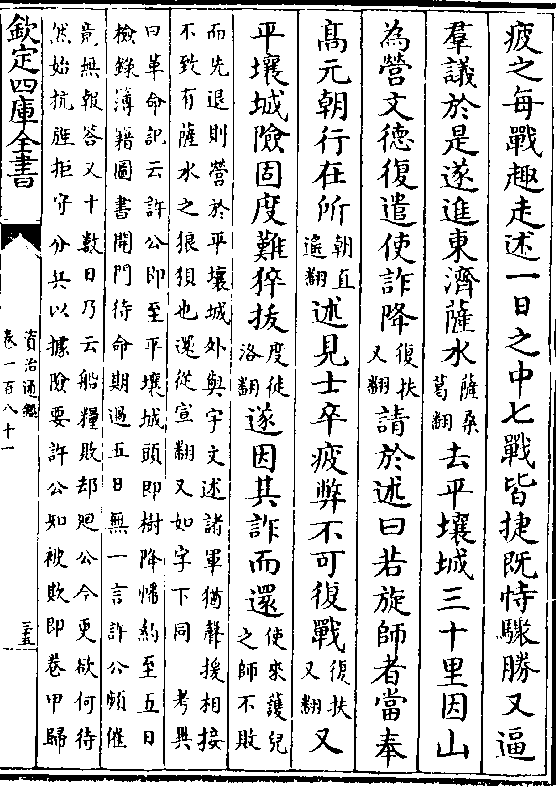 疲之每戰趣走述一日之中七戰皆捷既恃驟勝又逼
羣議於是遂進東濟薩水薩桑葛翻去平壤城三十里因山
為營文德復遣使詐降復扶又翻請於述曰若旋師者當奉
髙元朝行在所朝直遙翻述見士卒疲弊不可復戰復扶又翻又
平壤城險固度難猝拔度徒洛翻遂因其詐而還使來護兒之師不敗
而先退則營於平壤城外與宇文述諸軍猶聲援相接
不致有薩水之狼狽也還從宣翻又如字下同 考異
曰革命記云許公即至平壤城頭即樹降幡約至五日
檢錄簿籍圖書開門待命期過五日無一言許公頻催
竟無報答又十數日乃云船糧敗却廻公今更欲何待
然始抗旌拒守分兵以據險要許公知被欺即卷甲歸
欽定四庫全書
資治通鑑
卷一百八十一
三五